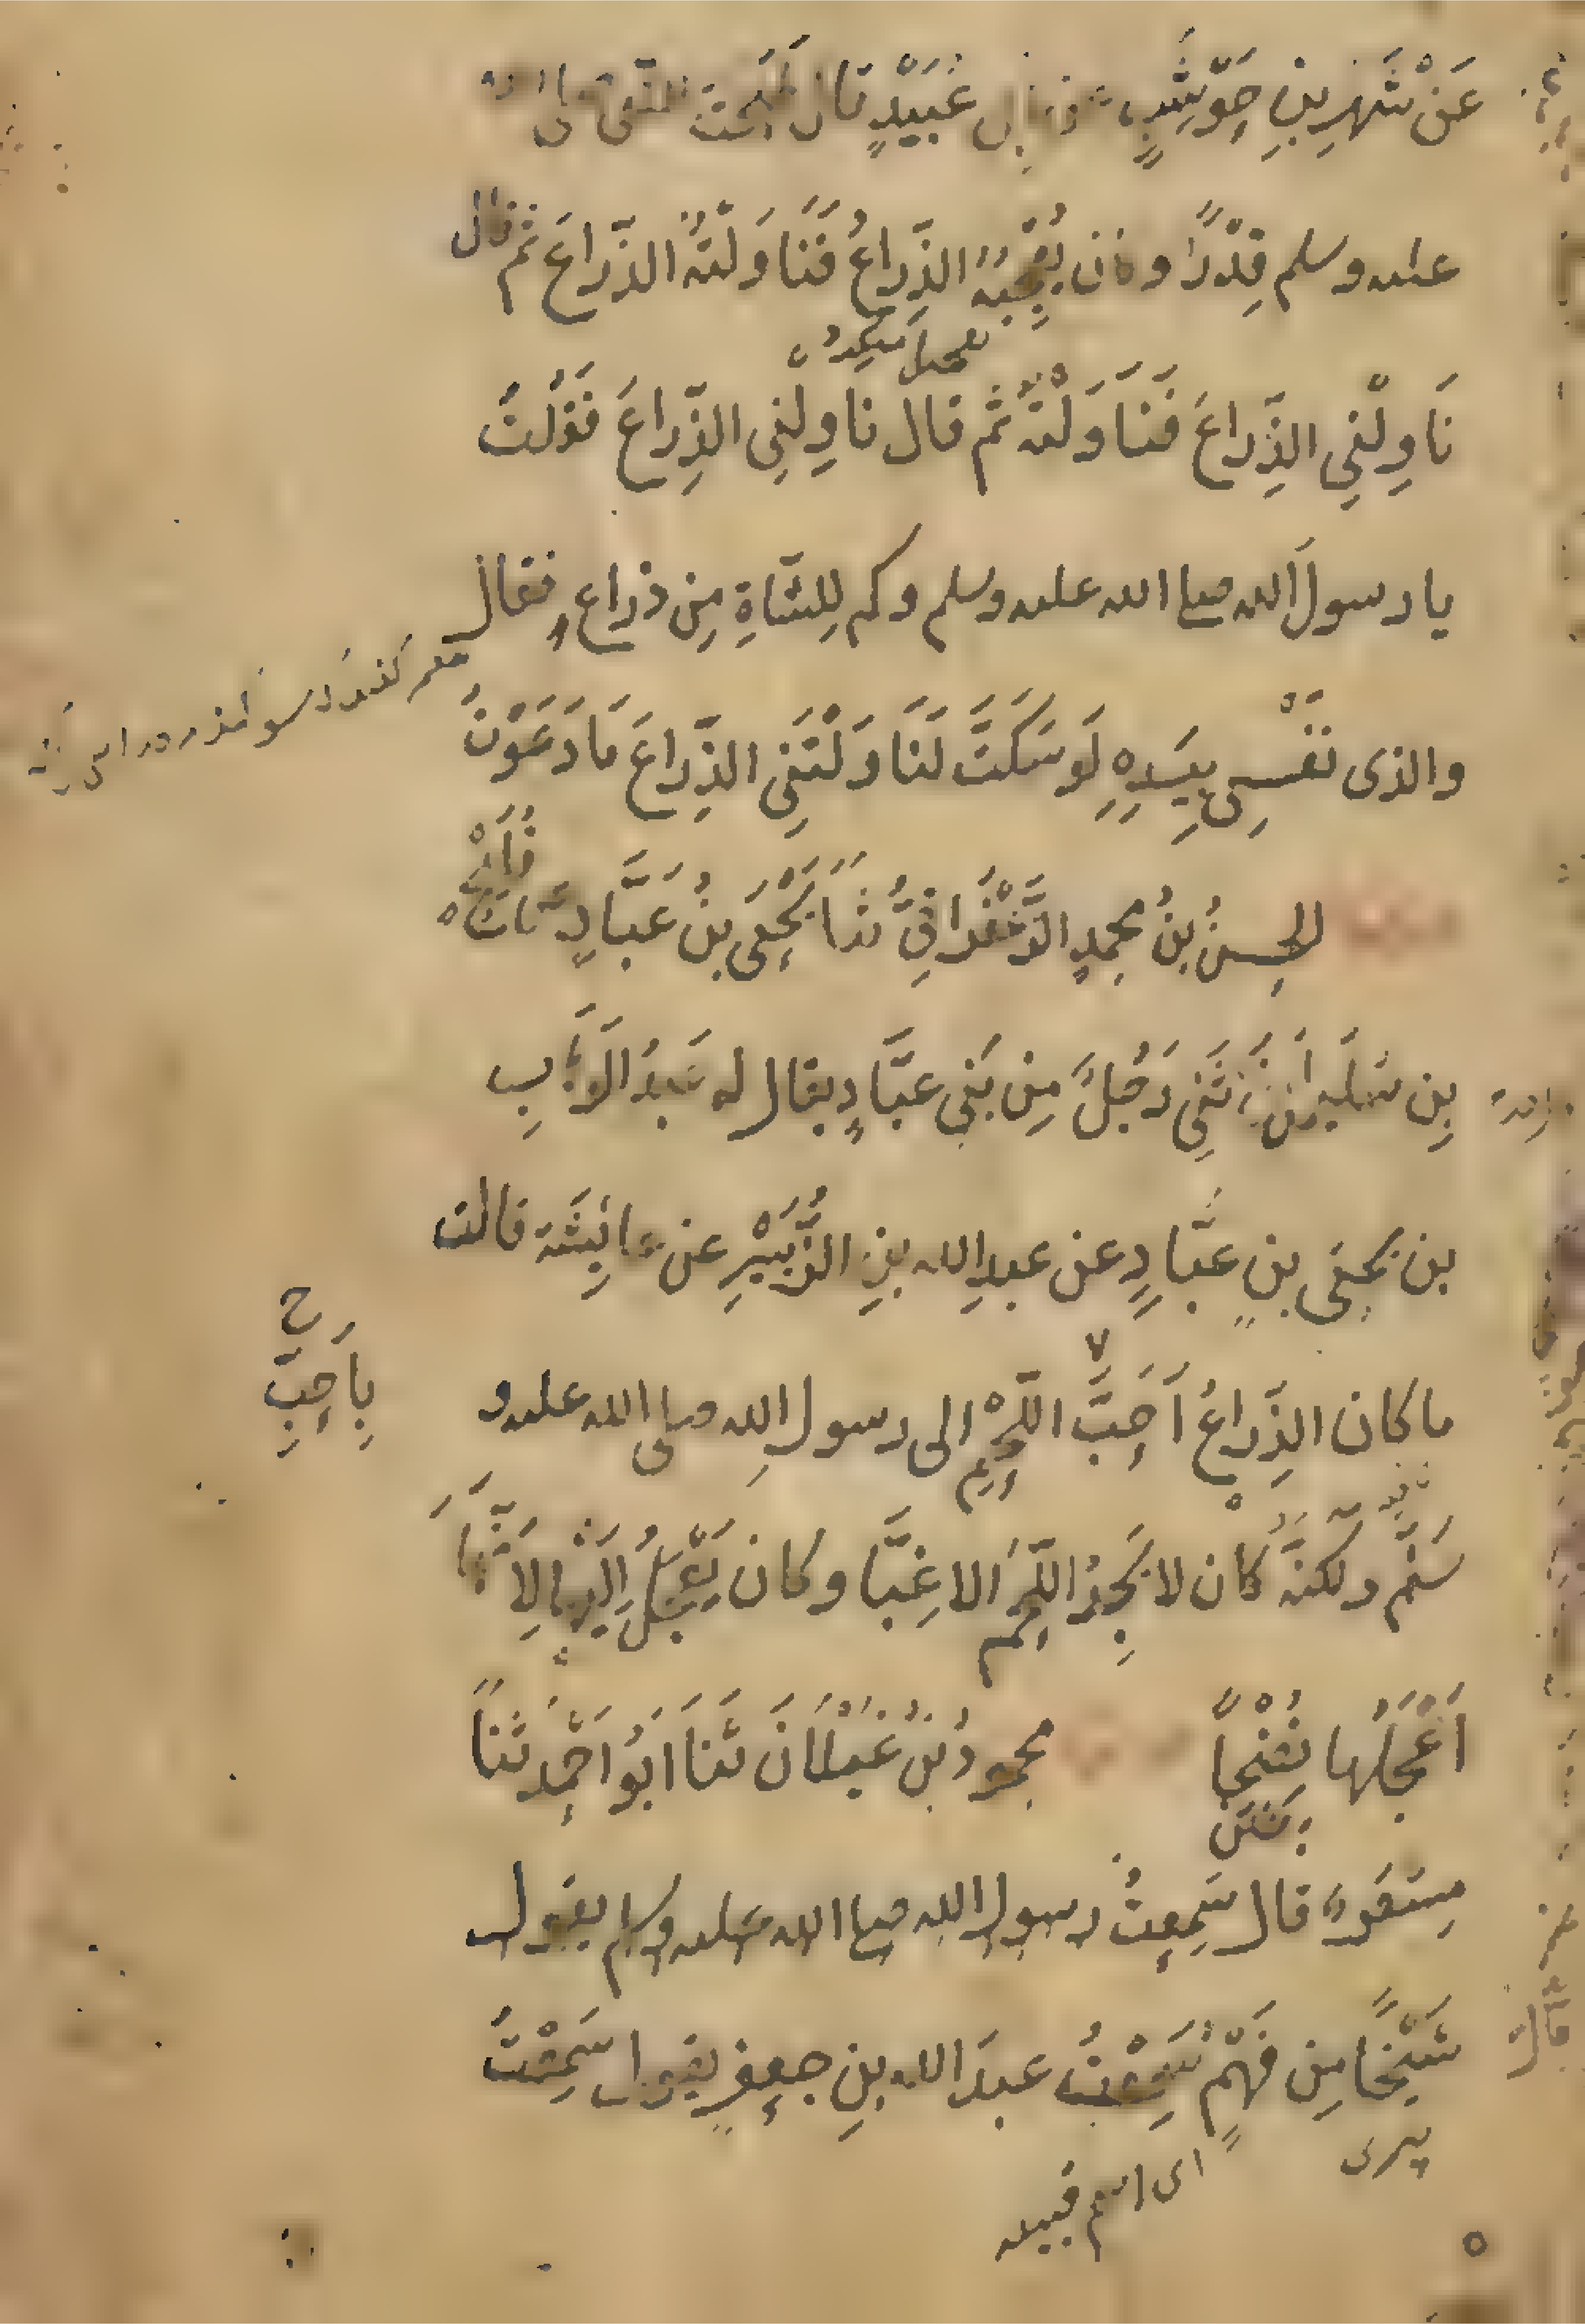 عَنْ شَهْرِ بنِ حَوْشَبٍ عن ابى عُبَيْدٍ قال طَبَخْتُ للنبى صلى الله
عليه وسلم قِدْرًا وكان يُعْجِبُهُ الذِّرَاعُ فَنَاوَلْتُهُ الذِّرَاعَ ثم قال
نَاوِلْنِى الذِّرَاعَ فَنَاوَلْتُهُ ثم قال نَاوِلْنِى الذِّرَاعَ فَقُلْتُ
يا رسولَ الله صلى الله عليه وسلم وكم لِلشَّاةِ مِن ذراعٍ فقال
والذى نَفْسِى بِيَدِهِ لَو سَكَتَّ لَنَاوَلْتَنِى الذِّرَاعَ مَا دَعَوْتُ
الحسنُ بنُ محمدٍ الزَّعْفَرَانِىُّ ثنا يَحْيَى بنُ عَبَّادٍ ثنا فُلَيْحُ
بنِ سُلَيمانَ ثَنِى رَجُلٌ مِن بَنِى عبَّادٍ يقال له عَبدُ الوَهَّابِ
بن يَحيَى بنِ عَبَّادٍ عن عبدِ الله بنِ الزُّبَيْرِ عن عائِشَة قالت
ما كان الذِّرَاعُ اَحَبَّ اللَّحْمِ الى رسولِ الله صلى الله عليه و
بِاَحَبِّ
سَلَّم ولكنَّهُ كان لا يَجِدُ اللَّحْمَ الا غِبًّا وكان يَعْجَلُ اليها لِاَنَّهَا
اَعْجَلُها نُضْجًا محمودُ بنُ غَيْلَانَ ثَنَا اَبُو اَحْمَدَ ثَنَا
مِسْعَرٌ قال سَمِعتُ رسول الله صلى الله عليه وسلم يقول
شَيْخًا مِن فَهْمٍ سَمِعْتُ عبدَ الله بنِ جعفرٍ يقول سَمِعْتُ
اى اسم قبيله